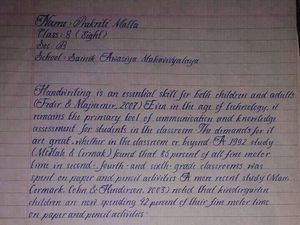 Name:- Prakriti Malla
Class:- 8 (Eight)
Sec:- B
School:- Sainik Awasiya Mahavidyalaya
Handwriting is an essential skill for both children and adults
(Feder & Majnemer, 2007) Even in the age of technology, it
remains the primary tool of communication and knowledge
assessment for students in the classroom The demands for it
are great, whether in the classroom or beyond. A 1992 study
(McHale & Cermak) found that 85 percent of all fine motor
time in second- fourth- and sixth- grade classrooms was
spent on paper and pencil activities A more recent study (Marr,
Cermark, Cohn & Henderson, 2003) noted that kindergarten
children are now spending 42 percent of their fine motor time
on paper and pencil activities